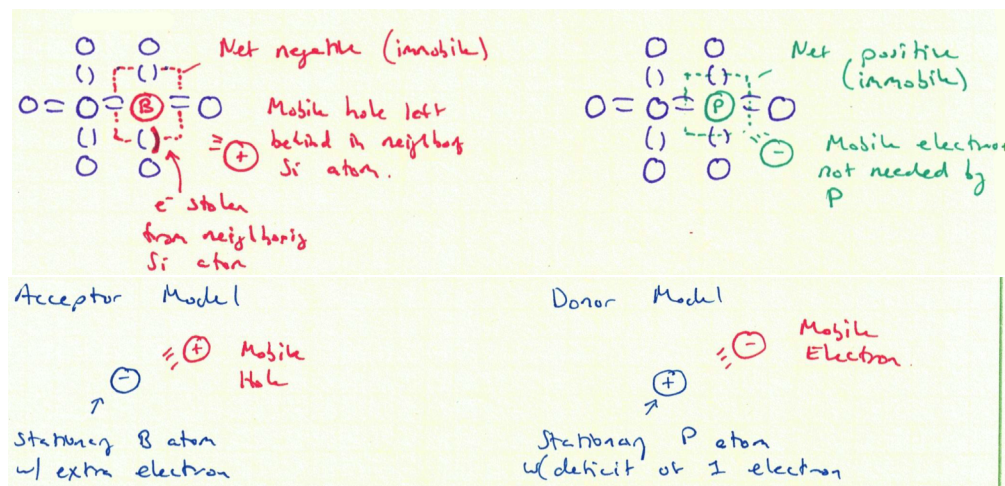 Net negative (immobile)
B
Mobile hole left
behind in neighbor
Si atom.
+
e⁻ stolen
from neighboring
Si atom
Net positive
(immobile)
P
Mobile electron
not needed by
P
−
Acceptor Model
+ Mobile
Hole
−
Stationary B atom
w/ extra electron
Donor Model
− Mobile
Electron.
+
Stationary P atom
w/ deficit of 1 electron